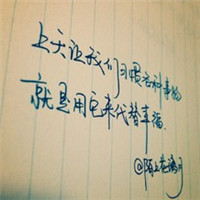 上天让我们习惯各种事物
就是用它来代替幸福.
@陌上花满月